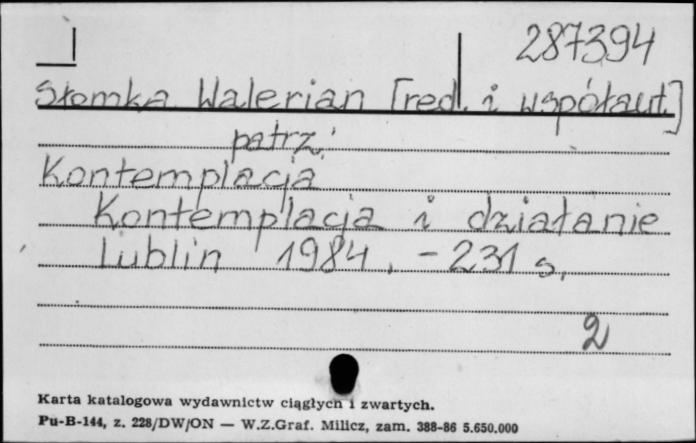 287394
Słomka Walerian [red. i współaut.]
patrz:
Kontemplacja
Kontemplacja i działanie
Lublin 1984. - 231 s.
2
Karta katalogowa wydawnictw ciągłych i zwartych.
Pu-B-144, z. 228/DW/ON — W.Z.Graf. Milicz, zam. 388-86 5.650.000